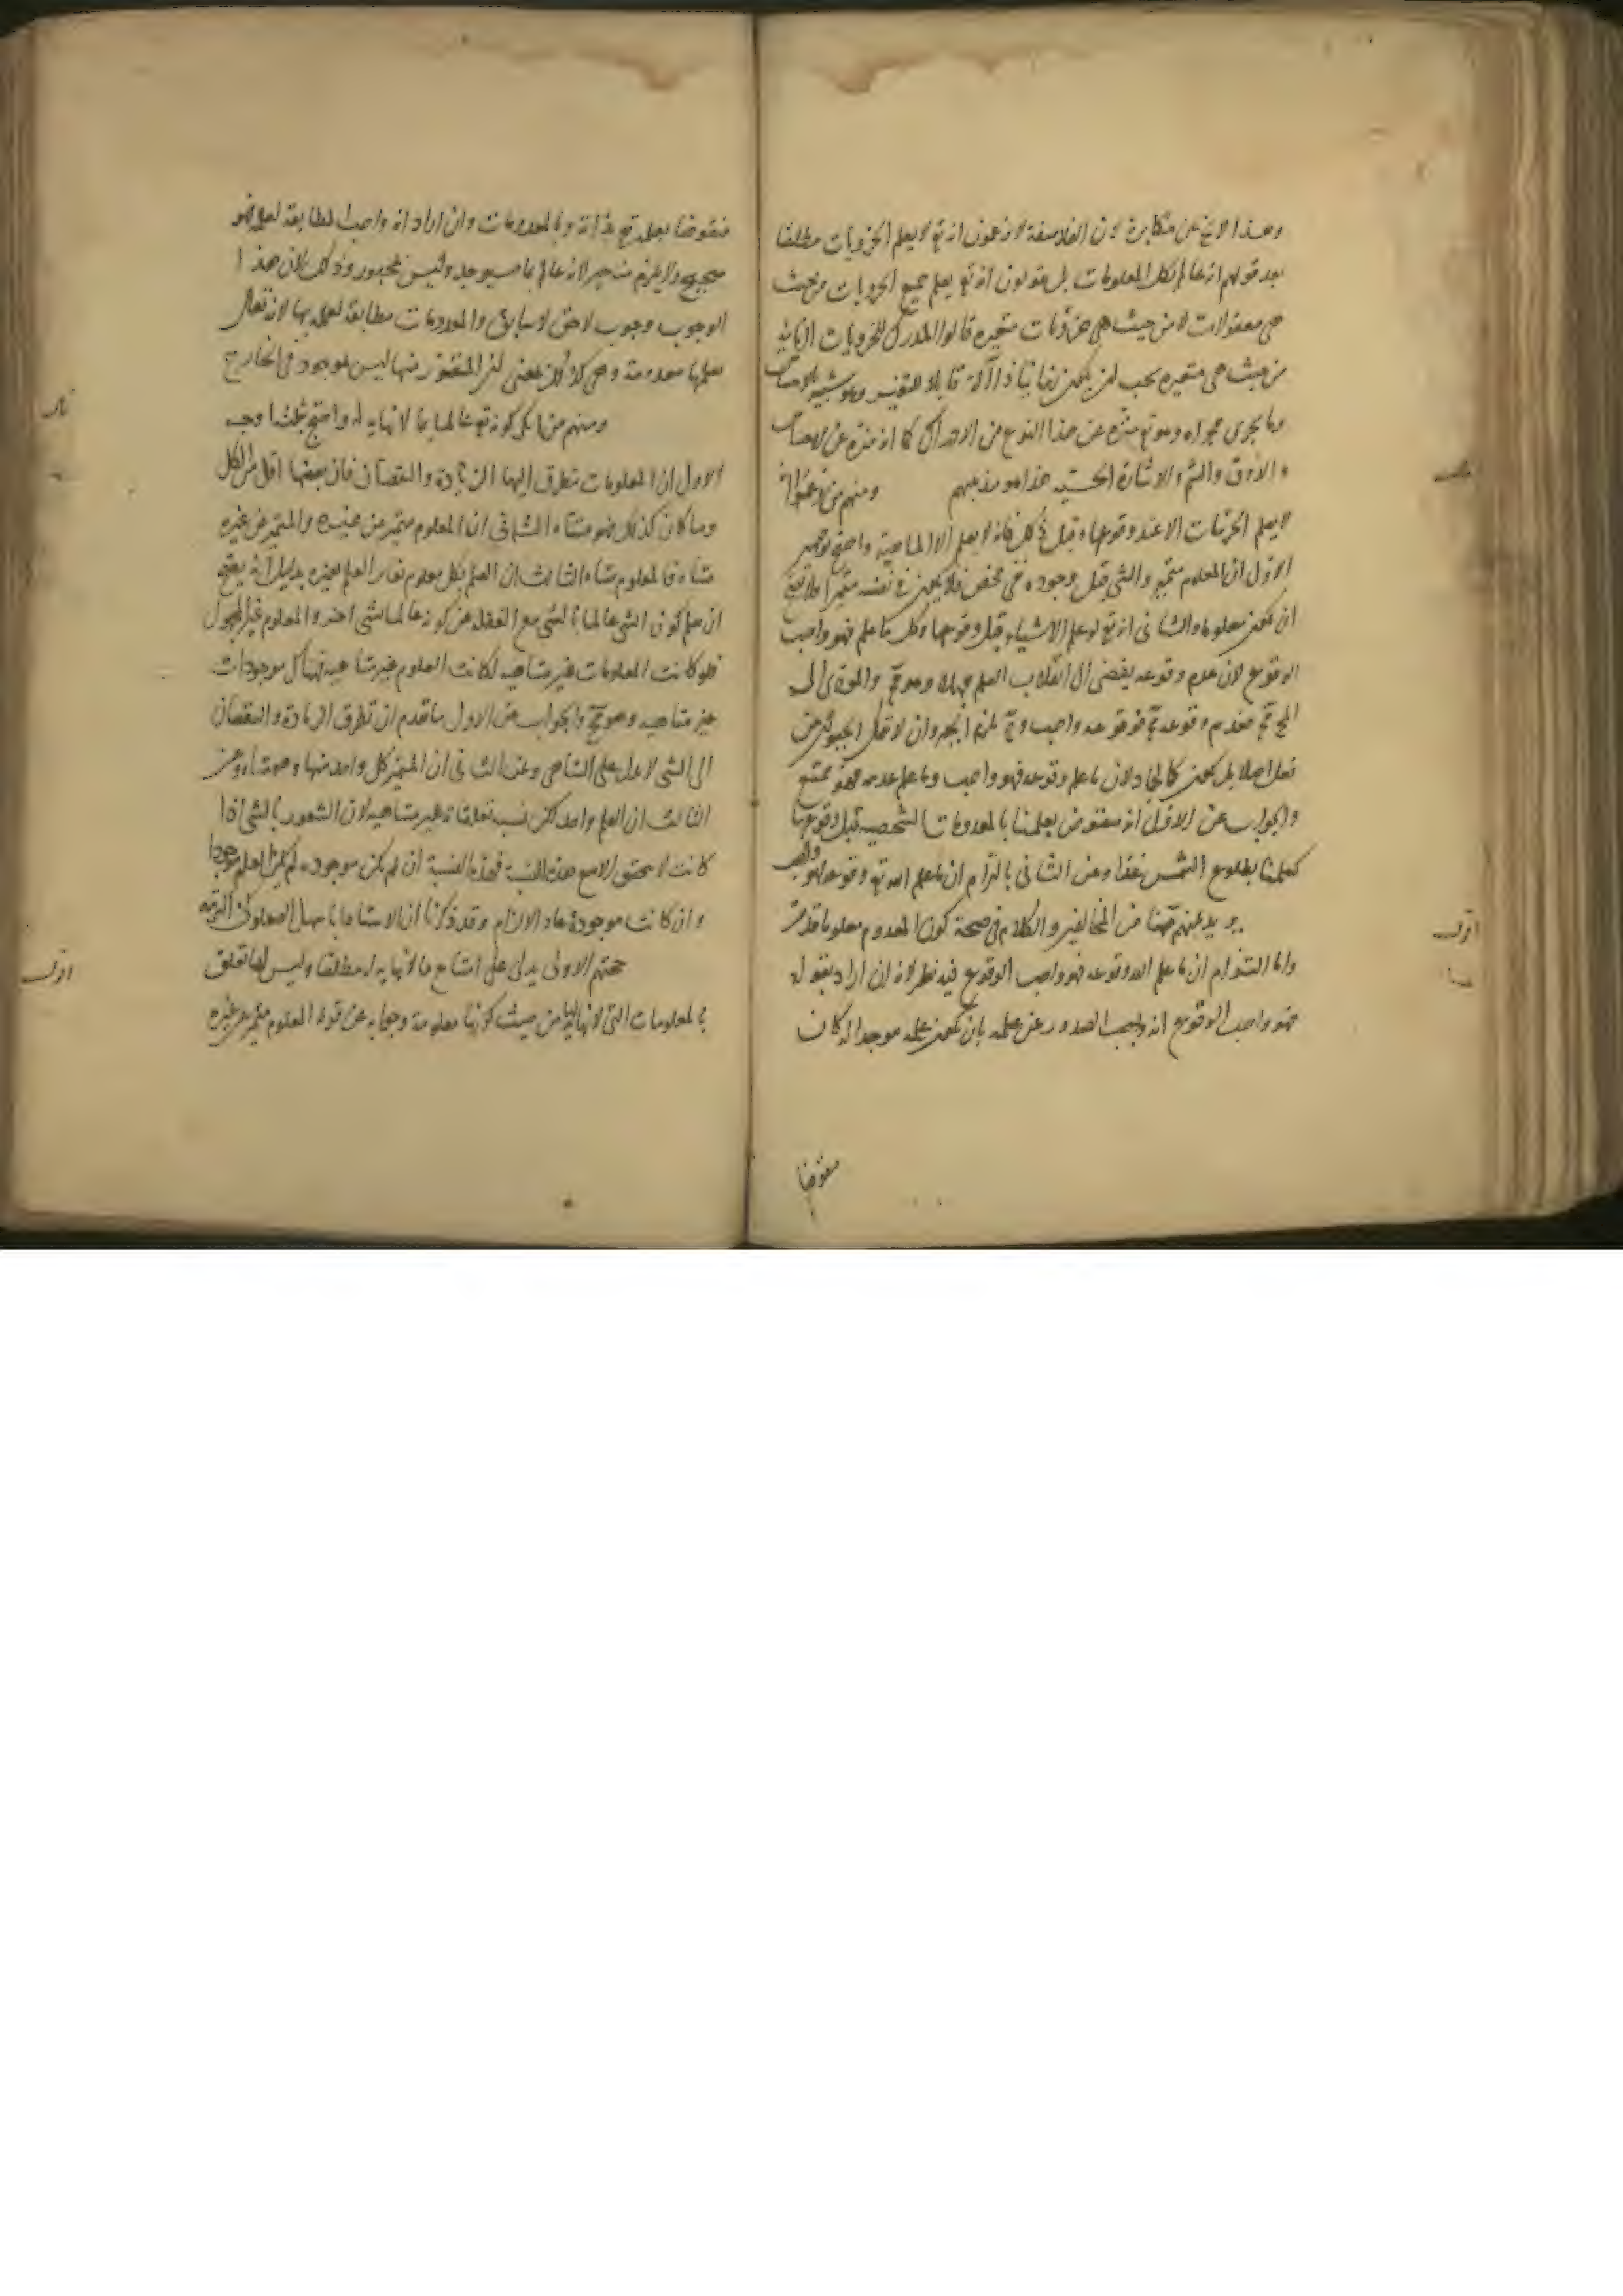 وهذا لا يخ عن مكابرة لان الفلاسفة لا يزعمون انه تع لا يعلم الجزويات مطلقا
بعد قولهم انه عالم بكل المعلومات بل يقولون انه تع يعلم جميع الجزويات من حيث
هي معقولات لا من حيث هي جزويات متغيره قالوا المدرك للجزويات الزمانيه
من حيث هي متغيره يجب ان يكون زمانيا ذا آلة قابلا للتغير وهو شبيه بالاحساس
وما يجرى مجراه وهو تع منزه عن هذا النوع من الادراك كما انه منزه عن الاحساس
والذوق والشم والاشارة الحسيه هذا هو مذهبهم ومنهم من زعم انه
لا يعلم الجزئيات الا عند وقوعها وقبل ذلك فانه لا يعلم الا الماهية واحتج بوجهين
الاول ان المعلوم متميز والشي قبل وجوده نفي محض فلا يكون في نفسه متميزا فلا يصح
ان يكون معلوما والثانى انه تع لو علم الاشياء قبل وقوعها وكل ما علم فهو واجب
الوقوع لان عدم وقوعه يفضى الى انقلاب العلم جهلا وهو مح والمودى الى
المح مح فعدم وقوعه مح فوقوعه واجب وح يلزم الجبر وان لا يتمكن الحيوان من
فعل اصلا بل يكون كالجماد لان ما علم وقوعه فهو واجب وما علم عدمه فهو ممتنع
والجواب عن الاول انه منقوض بعلمنا بالمعدومات الشخصيه قبل وقوعها
كعلمنا بطلوع الشمس غدا وعن الثانى بالتزام ان ما علم الله تع وقوعه فهو واجب
من المخالفين والكلام فى صحة كون المعدوم معلوما قد مر
واما التزام ان ما علم الله وقوعه فهو واجب الوقوع فيه نظر لانه ان اراد بقوله
فهو واجب الوقوع انه واجب الصدور عن علمه بان يكون علمه موجدا له كان
منقوضا
منقوضا بعلمه تع بذاته وبالمعدومات وان اراد انه واجب المطابقة لعلمه فهو
صحيح ولا يلزم منه جبر لانه عالم بما سيوجد وليس بمجبور وذلك لان هذا
الوجوب وجوب لاحق لا سابق والمعدومات مطابقة لعلمه بها لانه تعالى
يعلمها معدومة وهي كذلك بمعنى ان المتصور منها ليس بموجود فى الخارج
ومنهم من انكر كونه تع عالما بما لا نهاية له واحتج بثلثه اوجه
الاول ان المعلومات تتطرق اليها الزيادة والنقصان فان بعضها اقل من الكل
وما كان كذلك فهو متناه الثانى ان المعلوم متميز عن غيره والمتميز عن غيره
متناه فالمعلوم متناه الثالث ان العلم بكل معلوم يغاير العلم بغيره بدليل انه يصح
ان يعلم كون الشى عالما بالشى مع الغفلة عن كونه عالما بشى اخر والمعلوم غير المجهول
فلو كانت المعلومات غير متناهيه لكانت العلوم غير متناهيه فهناك موجودات
غير متناهيه وهو مح والجواب عن الاول ما تقدم ان تطرق الزيادة والنقصان
الى الشى لا يدل على التناهى وعن الثانى ان المتميز كل واحد منها وهو متناه وعن
الثالث ان العلم واحد لكن نسبه تعلقاته غير متناهيه لان الشعور بالشى اذا
كانت لا يتحقق الا مع هذه النسبة فهذه النسبة ان لم يكن موجوده لم يكن العلم موجودا
وان كانت موجودة عاد الالزام وقد ذكرنا ان الاستاد ابا سهل الصعلوكى التزمه
حجتهم الاولى يدل على امتناع ما لا نهاية له مطلقا وليس لها تعلق
بالمعلومات التى لا نهاية لها من حيث كونها معلومة وجوابه عن قوله المعلوم متميز عن غيره
اقول
اقول